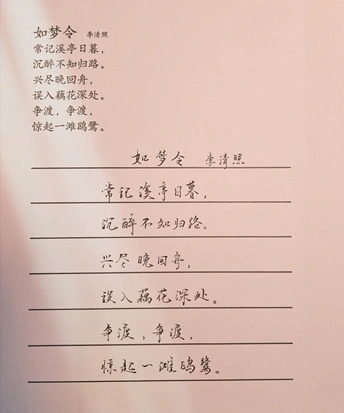 如梦令 李清照
常记溪亭日暮，
沉醉不知归路。
兴尽晚回舟，
误入藕花深处。
争渡，争渡，
惊起一滩鸥鹭。
如梦令 李清照
常记溪亭日暮，
沉醉不知归路。
兴尽晚回舟，
误入藕花深处。
争渡，争渡，
惊起一滩鸥鹭。